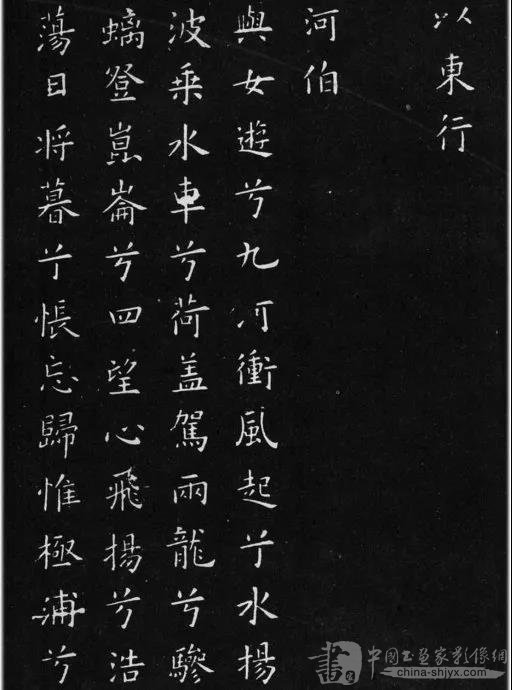 以東行
河伯
與女遊兮九河衝風起兮水揚
波乗水車兮荷盖駕兩龍兮驂
螭登崑崙兮四望心飛揚兮浩
蕩日将暮兮悵忘歸惟極浦兮
書
中国书画家影像網
china-shjyx.com